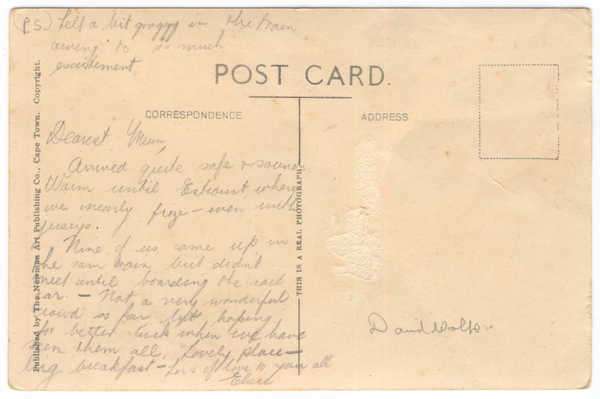 (P.S.) Felt a bit groggy in the train
owing to so much
excitement
POST CARD.
CORRESPONDENCE
ADDRESS
Dearest Mum,
Arrived quite safe & sound.
Warm until Estcourt, where
we nearly froze – even with
jerseys.
Nine of us came up in
the same train, but didn't
meet until boarding the rail
car. – Not a very wonderful
crowd so far, but hoping
for better luck when we have
seen them all. Lovely place –
big breakfast – Lots of love to you all
David Wolfe
Published by The Newman Art Publishing Co., Cape Town. Copyright.
THIS IS A REAL PHOTOGRAPH.